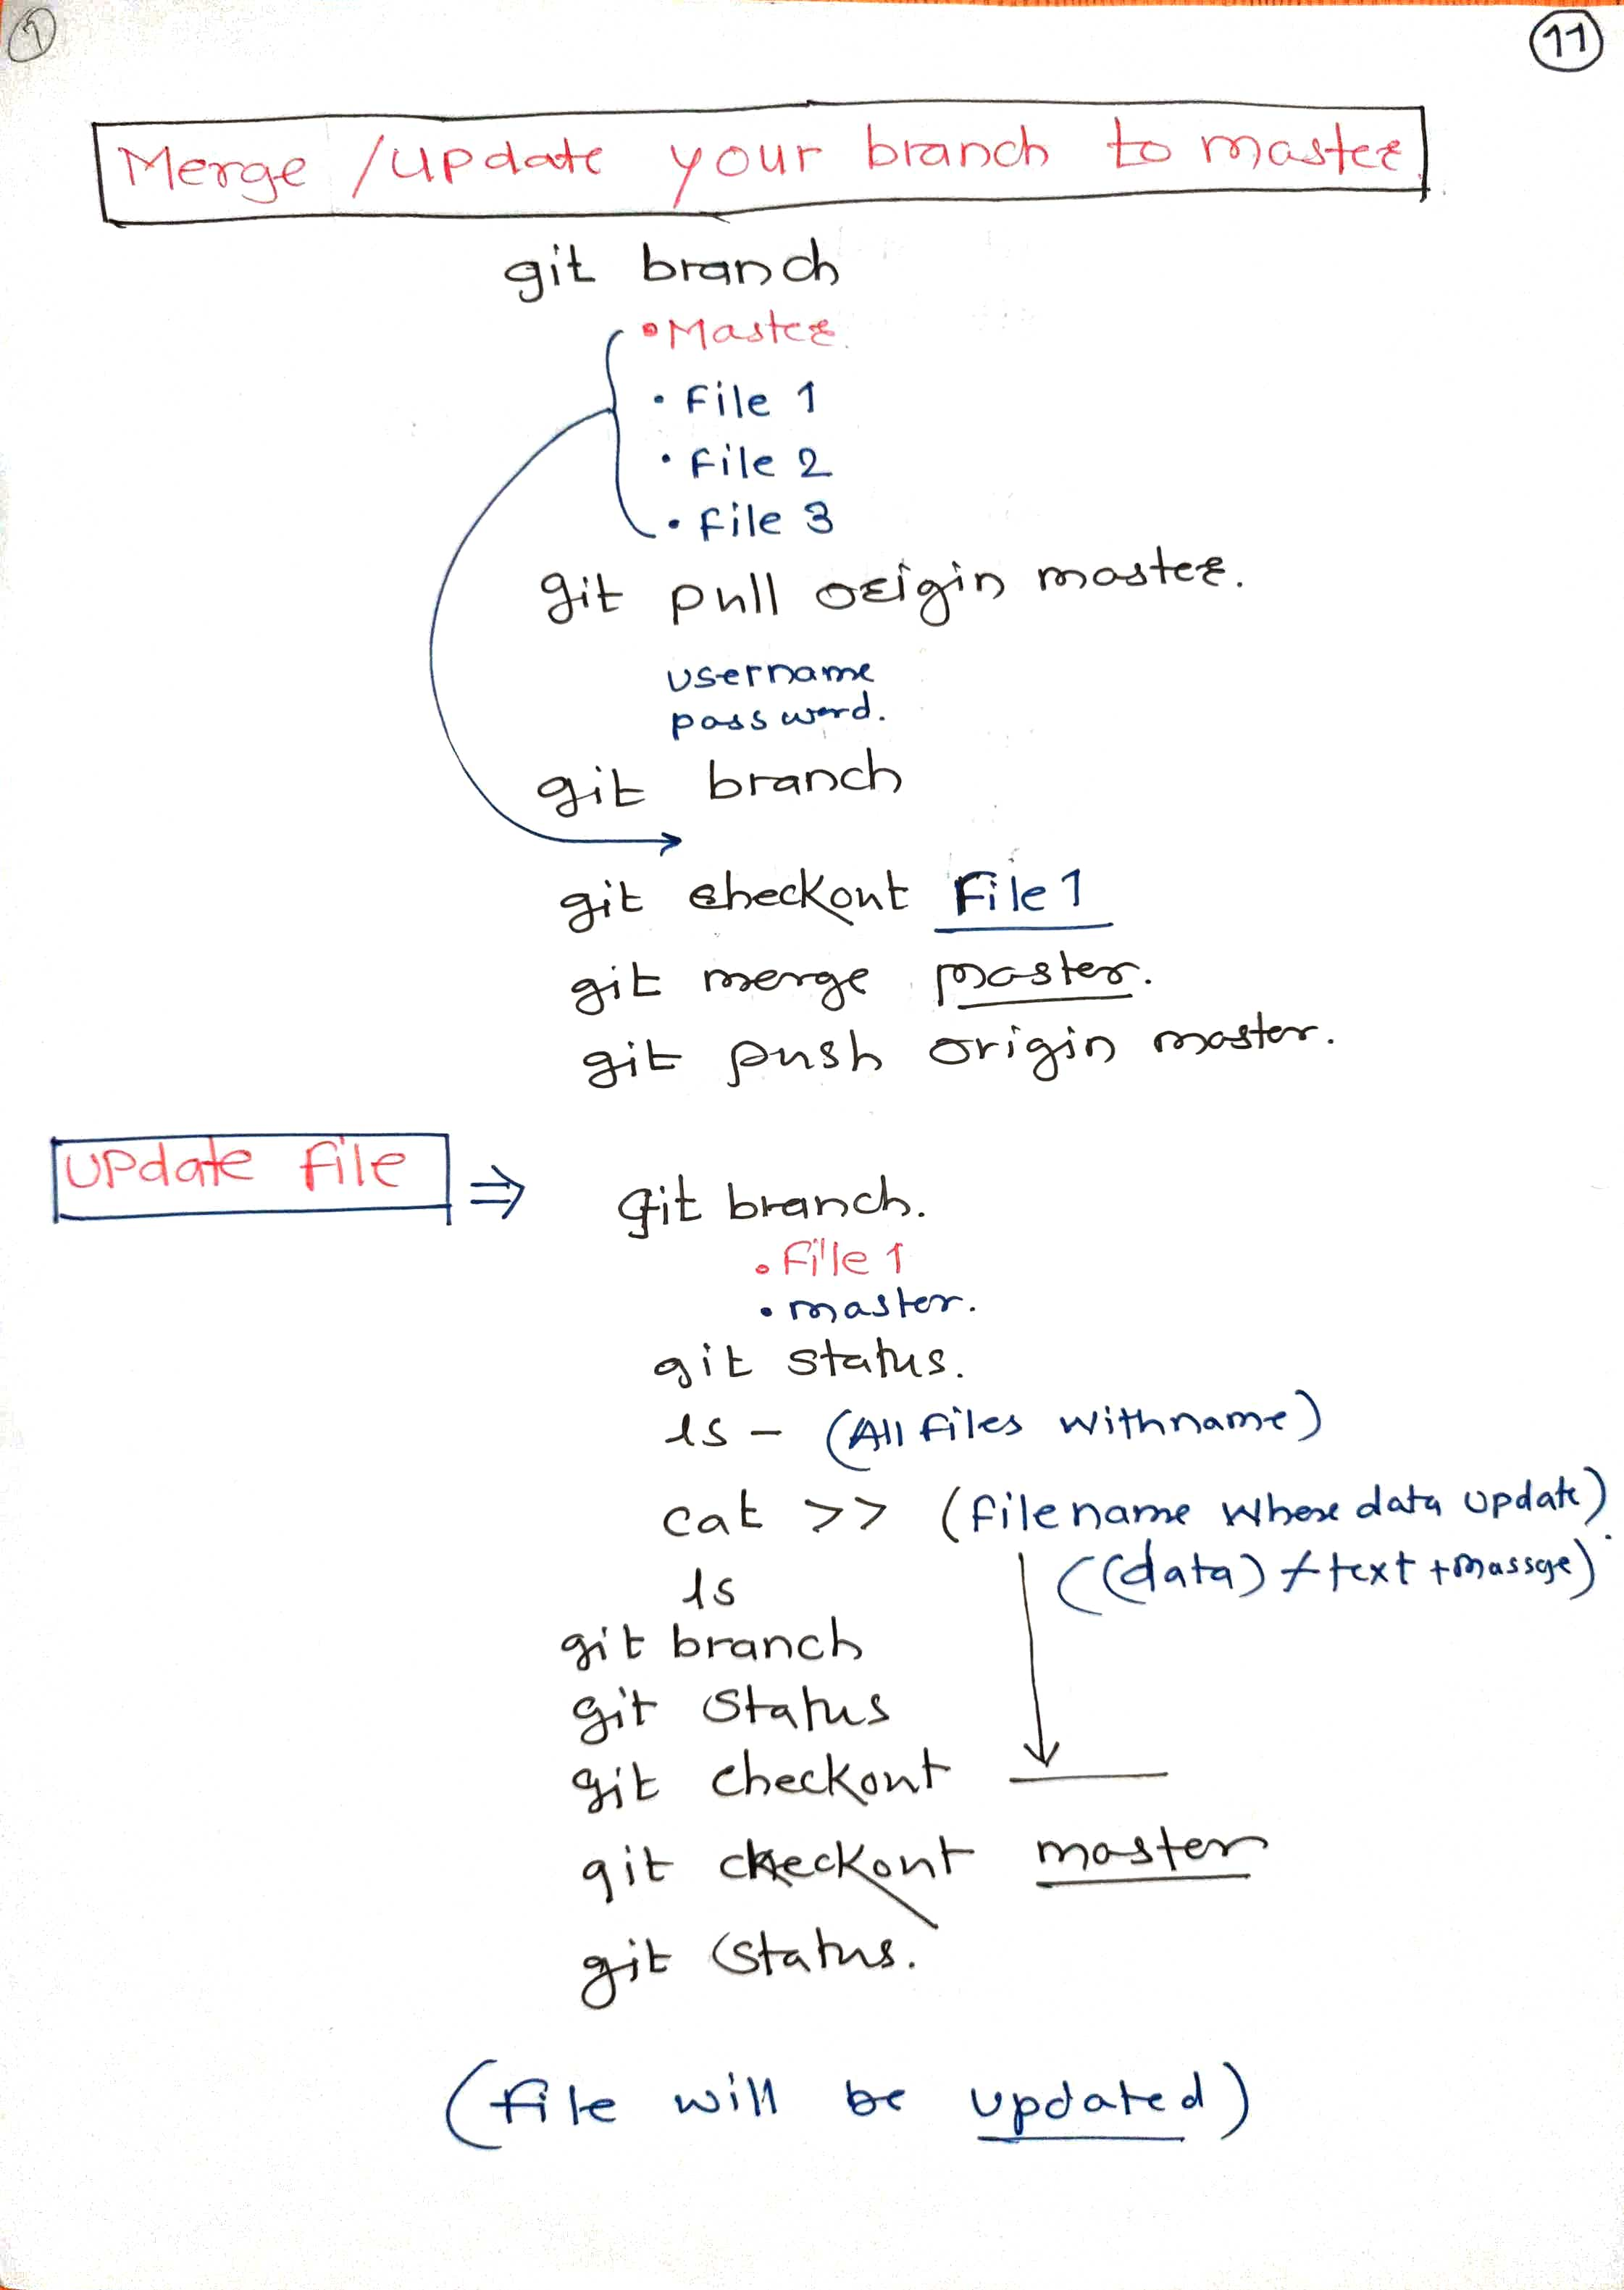 1
11
Merge /update your branch to master
git branch
• Master.
• File 1
• File 2
• File 3
git pull origin master.
username
password.
git branch
git checkout File 1
git merge master.
git push origin master.
Update file ⇒ git branch.
• File 1
• master.
git status.
ls - (All files with name)
cat >> (file name where data update)
((data) + text + massge)
ls
git branch
git status
git checkout ____
git checkout master
git status.
(file will be updated)